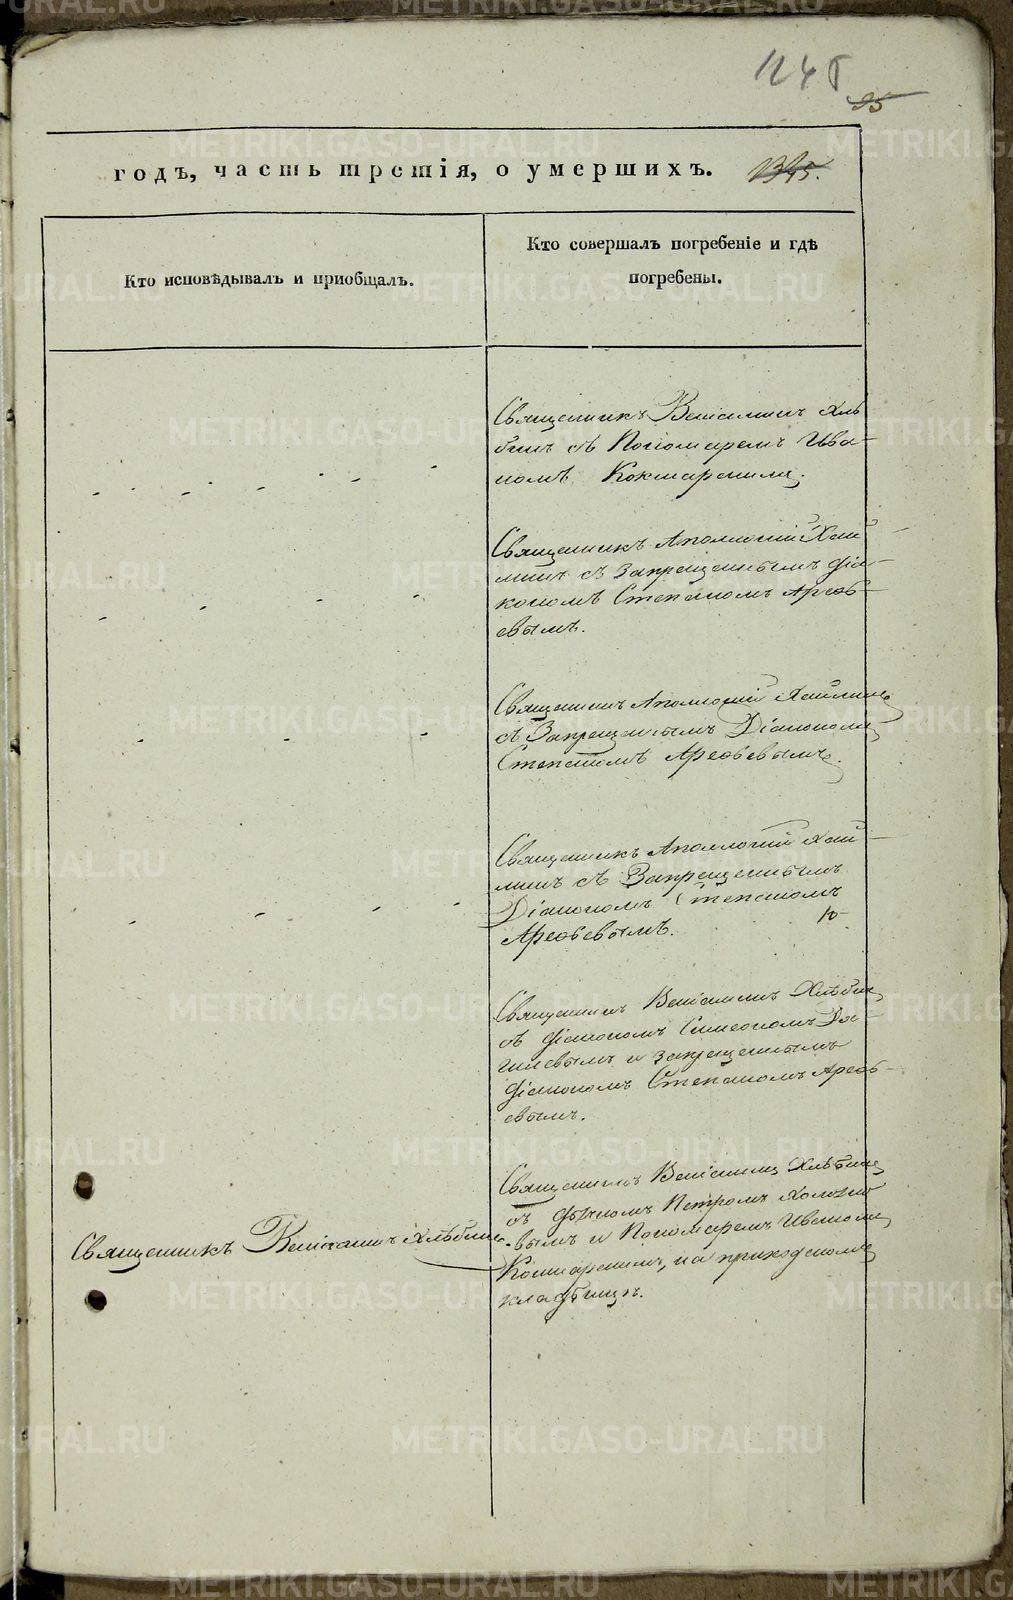 124 б
95
годъ, часть третія, о умершихъ.
Кто исповѣдывалъ и приобщалъ.
Кто совершалъ погребеніе и гдѣ
погребены.
Священникъ Веніаминъ Хлѣ
бинъ съ Пономаремъ Ива-
номъ Кокшарскимъ.
Священникъ Аполлосій Хай
минъ съ Запрещеннымъ діа-
кономъ Степаномъ Арефь-
евымъ.
Священникъ Аполлосій
съ Запрещеннымъ Діакономъ
Степаномъ Арефьевымъ.
Священникъ Аполлосій Хай-
минъ съ Запрещеннымъ
Діакономъ Степаномъ
Арефьевымъ.
Священникъ Веніаминъ Хлѣбинъ
съ діакономъ Симеономъ Дя-
гилевымъ и запрещеннымъ
діакономъ Степаномъ Арефь-
евымъ.
Священникъ Веніаминъ Хлѣбинъ
Священникъ Веніаминъ Хлѣбинъ
съ дьячкомъ Петромъ
вымъ и Пономаремъ Иваномъ
на приходскомъ
кладбищѣ.
METRIKI.GASO-URAL.RU